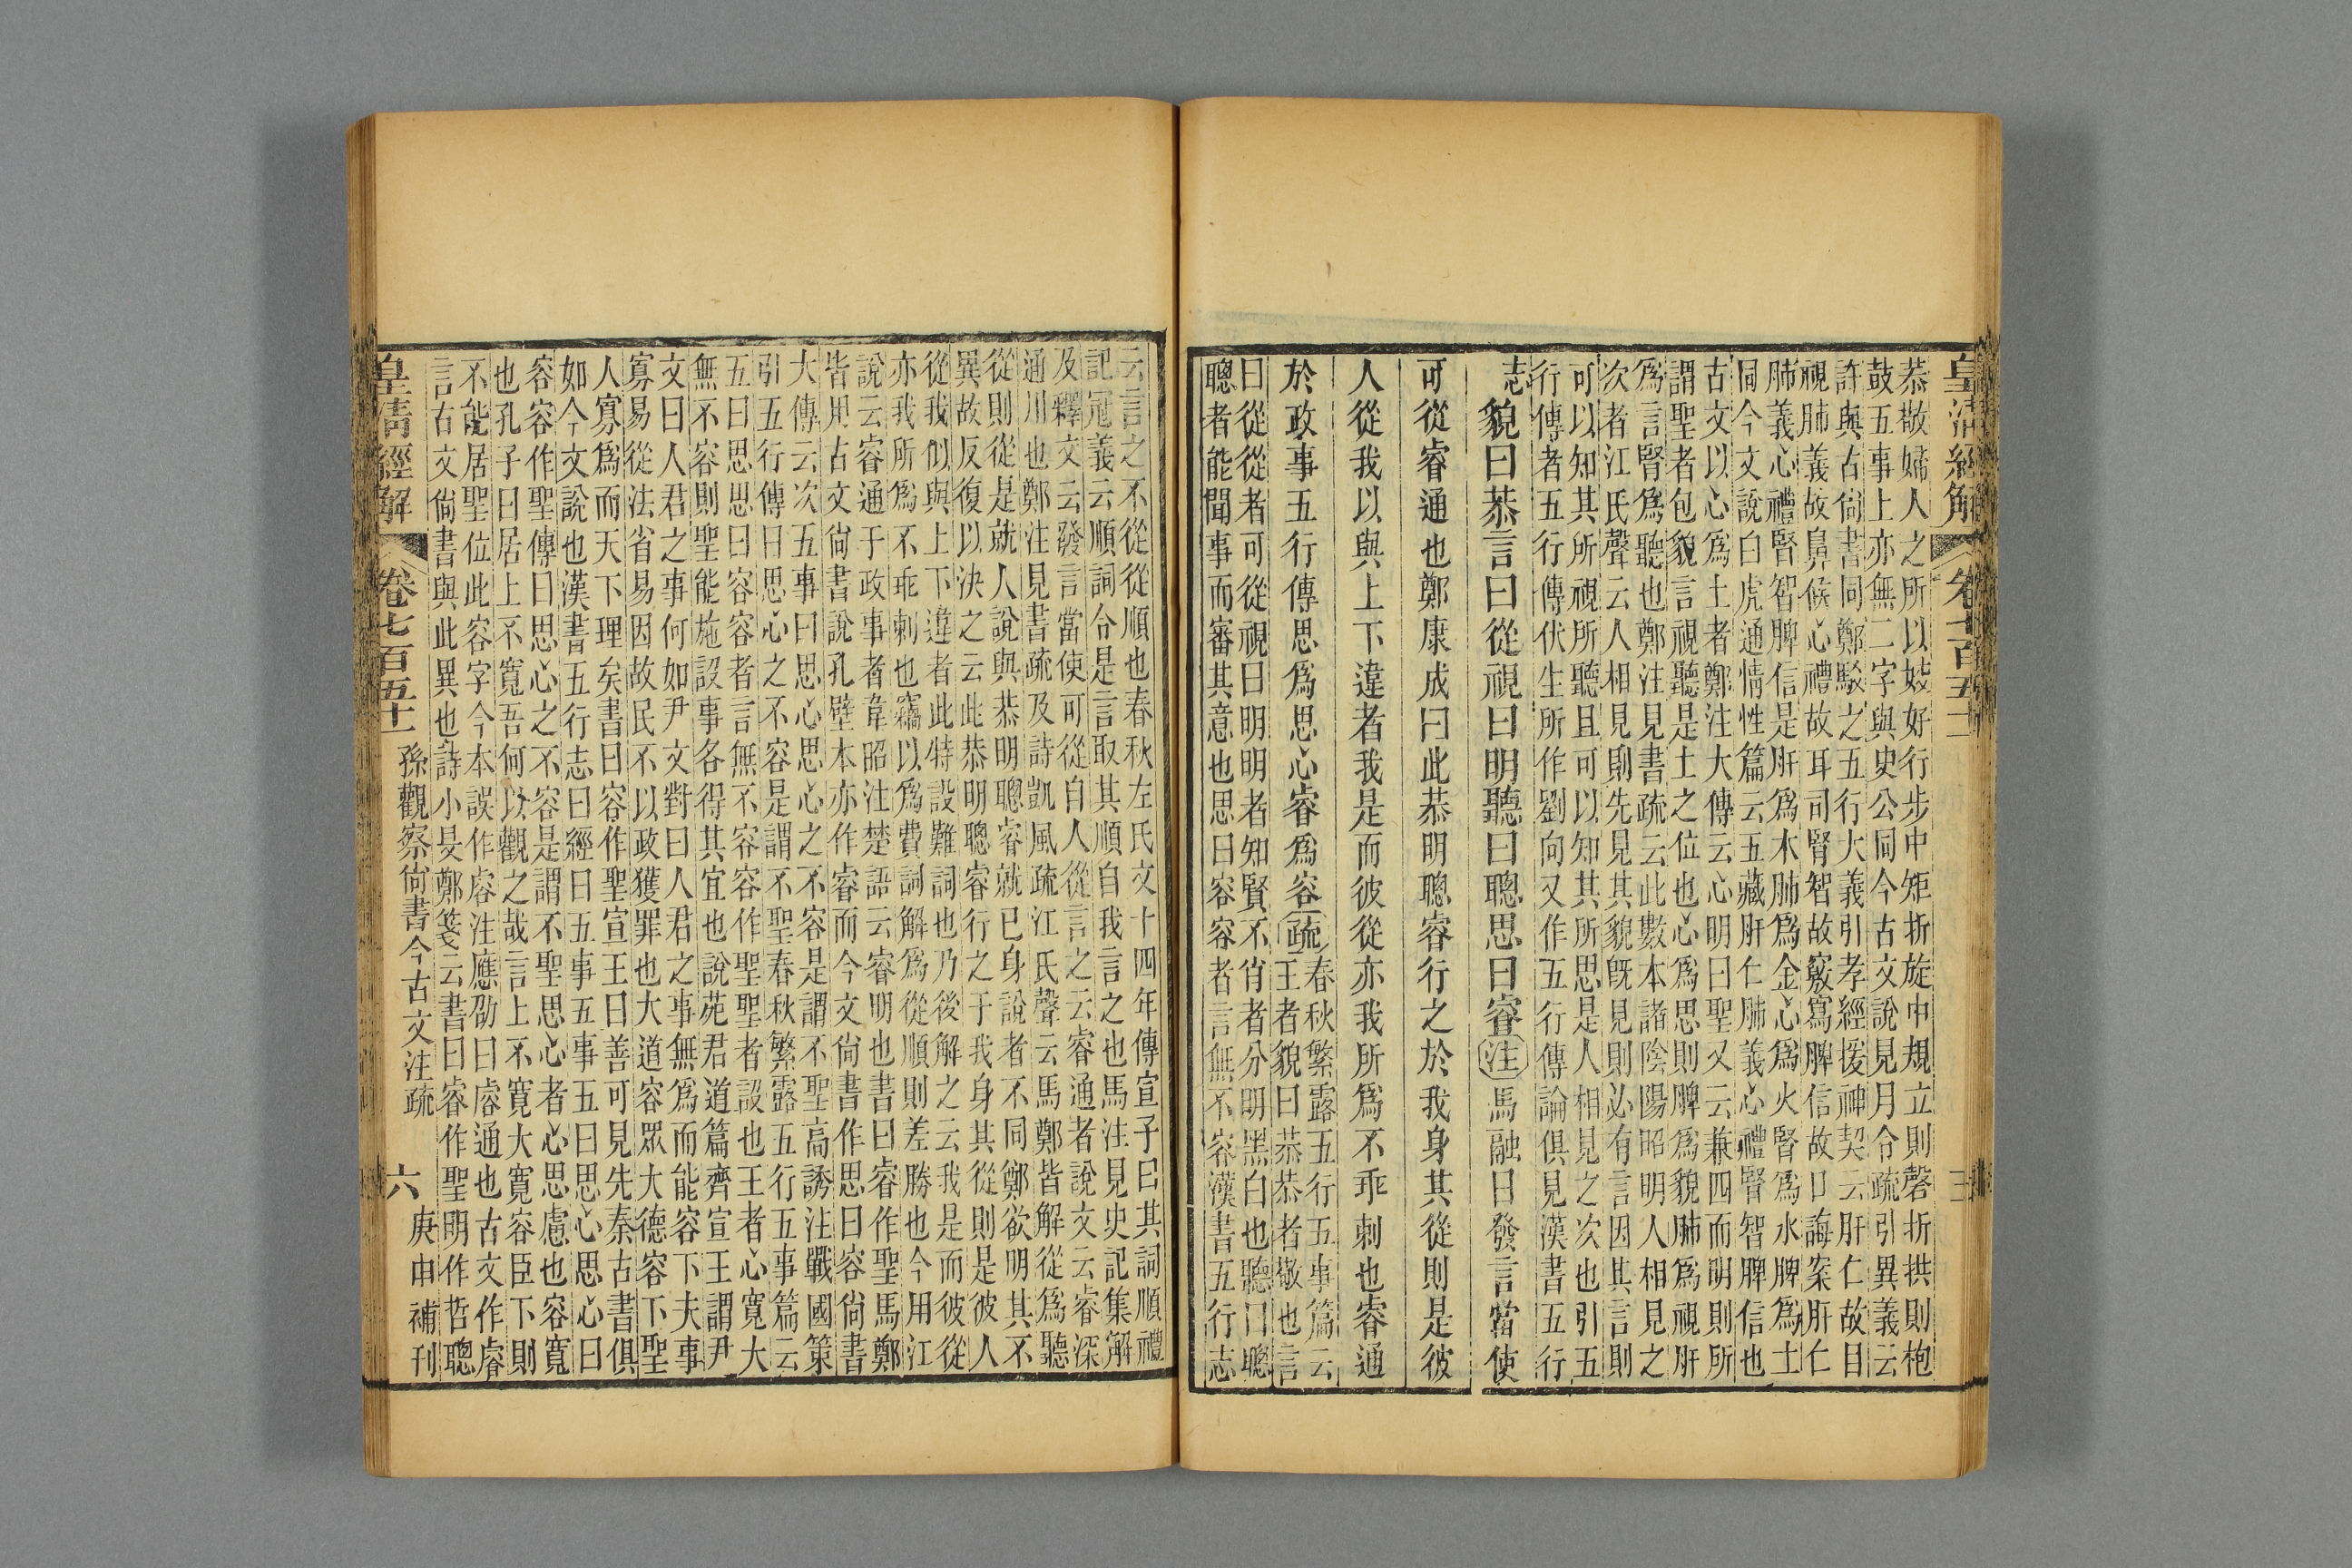 皇清經解
卷七百五十一
恭敬婦人之所以姣好行步中矩折旋中規立則磬折拱則枹
鼓五事上亦無二字與史公同今古文說見月令疏引異義云
許與古尙書同鄭駁之五行大義引孝經援神契云肝仁故目
視肺義故鼻候心禮故耳司腎智故竅寫脾信故口誨案肝仁
肺義心禮腎智脾信是肝爲木肺爲金心爲火腎爲水脾爲土
同今文說白虎通情性篇云五藏肝仁肺義心禮腎智脾信也
古文以心爲土者鄭注大傳云心明曰聖又云兼四而明則所
謂聖者包貌言視聽是土之位也心爲思則脾爲貌肺爲視肝
爲言腎爲聽也鄭注見書疏云此數本諸陰陽昭明人相見之
次者江氏聲云人相見則先見其貌旣見則必有言因其言則
可以知其所視所聽且可以知其所思是人相見之次也引五
行傳者五行傳伏生所作劉向又作五行傳論俱見漢書五行
志
貌曰恭言曰從視曰明聽曰聰思曰睿注馬融曰發言當使
可從睿通也鄭康成曰此恭明聰睿行之於我身其從則是彼
人從我以與上下違者我是而彼從亦我所爲不乖刺也睿通
於政事五行傳思爲思心睿爲容疏
春秋繁露五行五事篇云
王者貌曰恭恭者敬也言
曰從從者可從視曰明明者知賢不肖者分明黑白也聽曰聰
聰者能聞事而審其意也思曰容容者言無不容漢書五行志
云言之不從從順也春秋左氏文十四年傳宣子曰其詞順禮
記冠義云順詞令是言取其順自我言之也馬注見史記集解
及釋文云發言當使可從自人從言之云睿通者說文云睿深
通川也鄭注見書疏及詩凱風疏江氏聲云馬鄭皆解從爲聽
從則從是就人說與恭明聰睿就已身說者不同鄭欲明其不
異故反復以決之云此恭明聰睿行之于我身其從則是彼人
從我似與上下違者此特設難詞也乃後解之云我是而彼從
亦我所爲不乖刺也竊以爲費詞解爲從順則差勝也今用江
說云睿通于政事者韋昭注楚語云睿明也書曰睿作聖馬鄭
皆用古文尙書說孔壁本亦作睿而今文尙書作思曰容尙書
大傳云次五事曰思心思心之不容是謂不聖高誘注戰國策
引五行傳曰思心之不容是謂不聖春秋繁露五行五事篇云
五曰思思曰容容者言無不容容作聖聖者設也王者心寬大
無不容則聖能施設事各得其宜也說苑君道篇齊宣王謂尹
文曰人君之事何如尹文對曰人君之事無爲而能容下夫事
寡易從法省易因故民不以政獲罪也大道容眾大德容下聖
人寡爲而天下理矣書曰容作聖宣王曰善可見先秦古書俱
如今文說也漢書五行志曰經曰五事五事五曰思心思心曰
容容作聖傳曰思心之不容是謂不聖思心者心思慮也容寬
也孔子曰居上不寬吾何以觀之哉言上不寬大寬容臣下則
不能居聖位此容字今本誤作㾮注應劭曰㾮通也古文作㾮
言古文尙書與此異也詩小旻鄭箋云書曰睿作聖明作哲聰
皇清經解
卷七百五十一
孫觀察尙書今古文注疏
六
庚申補刊